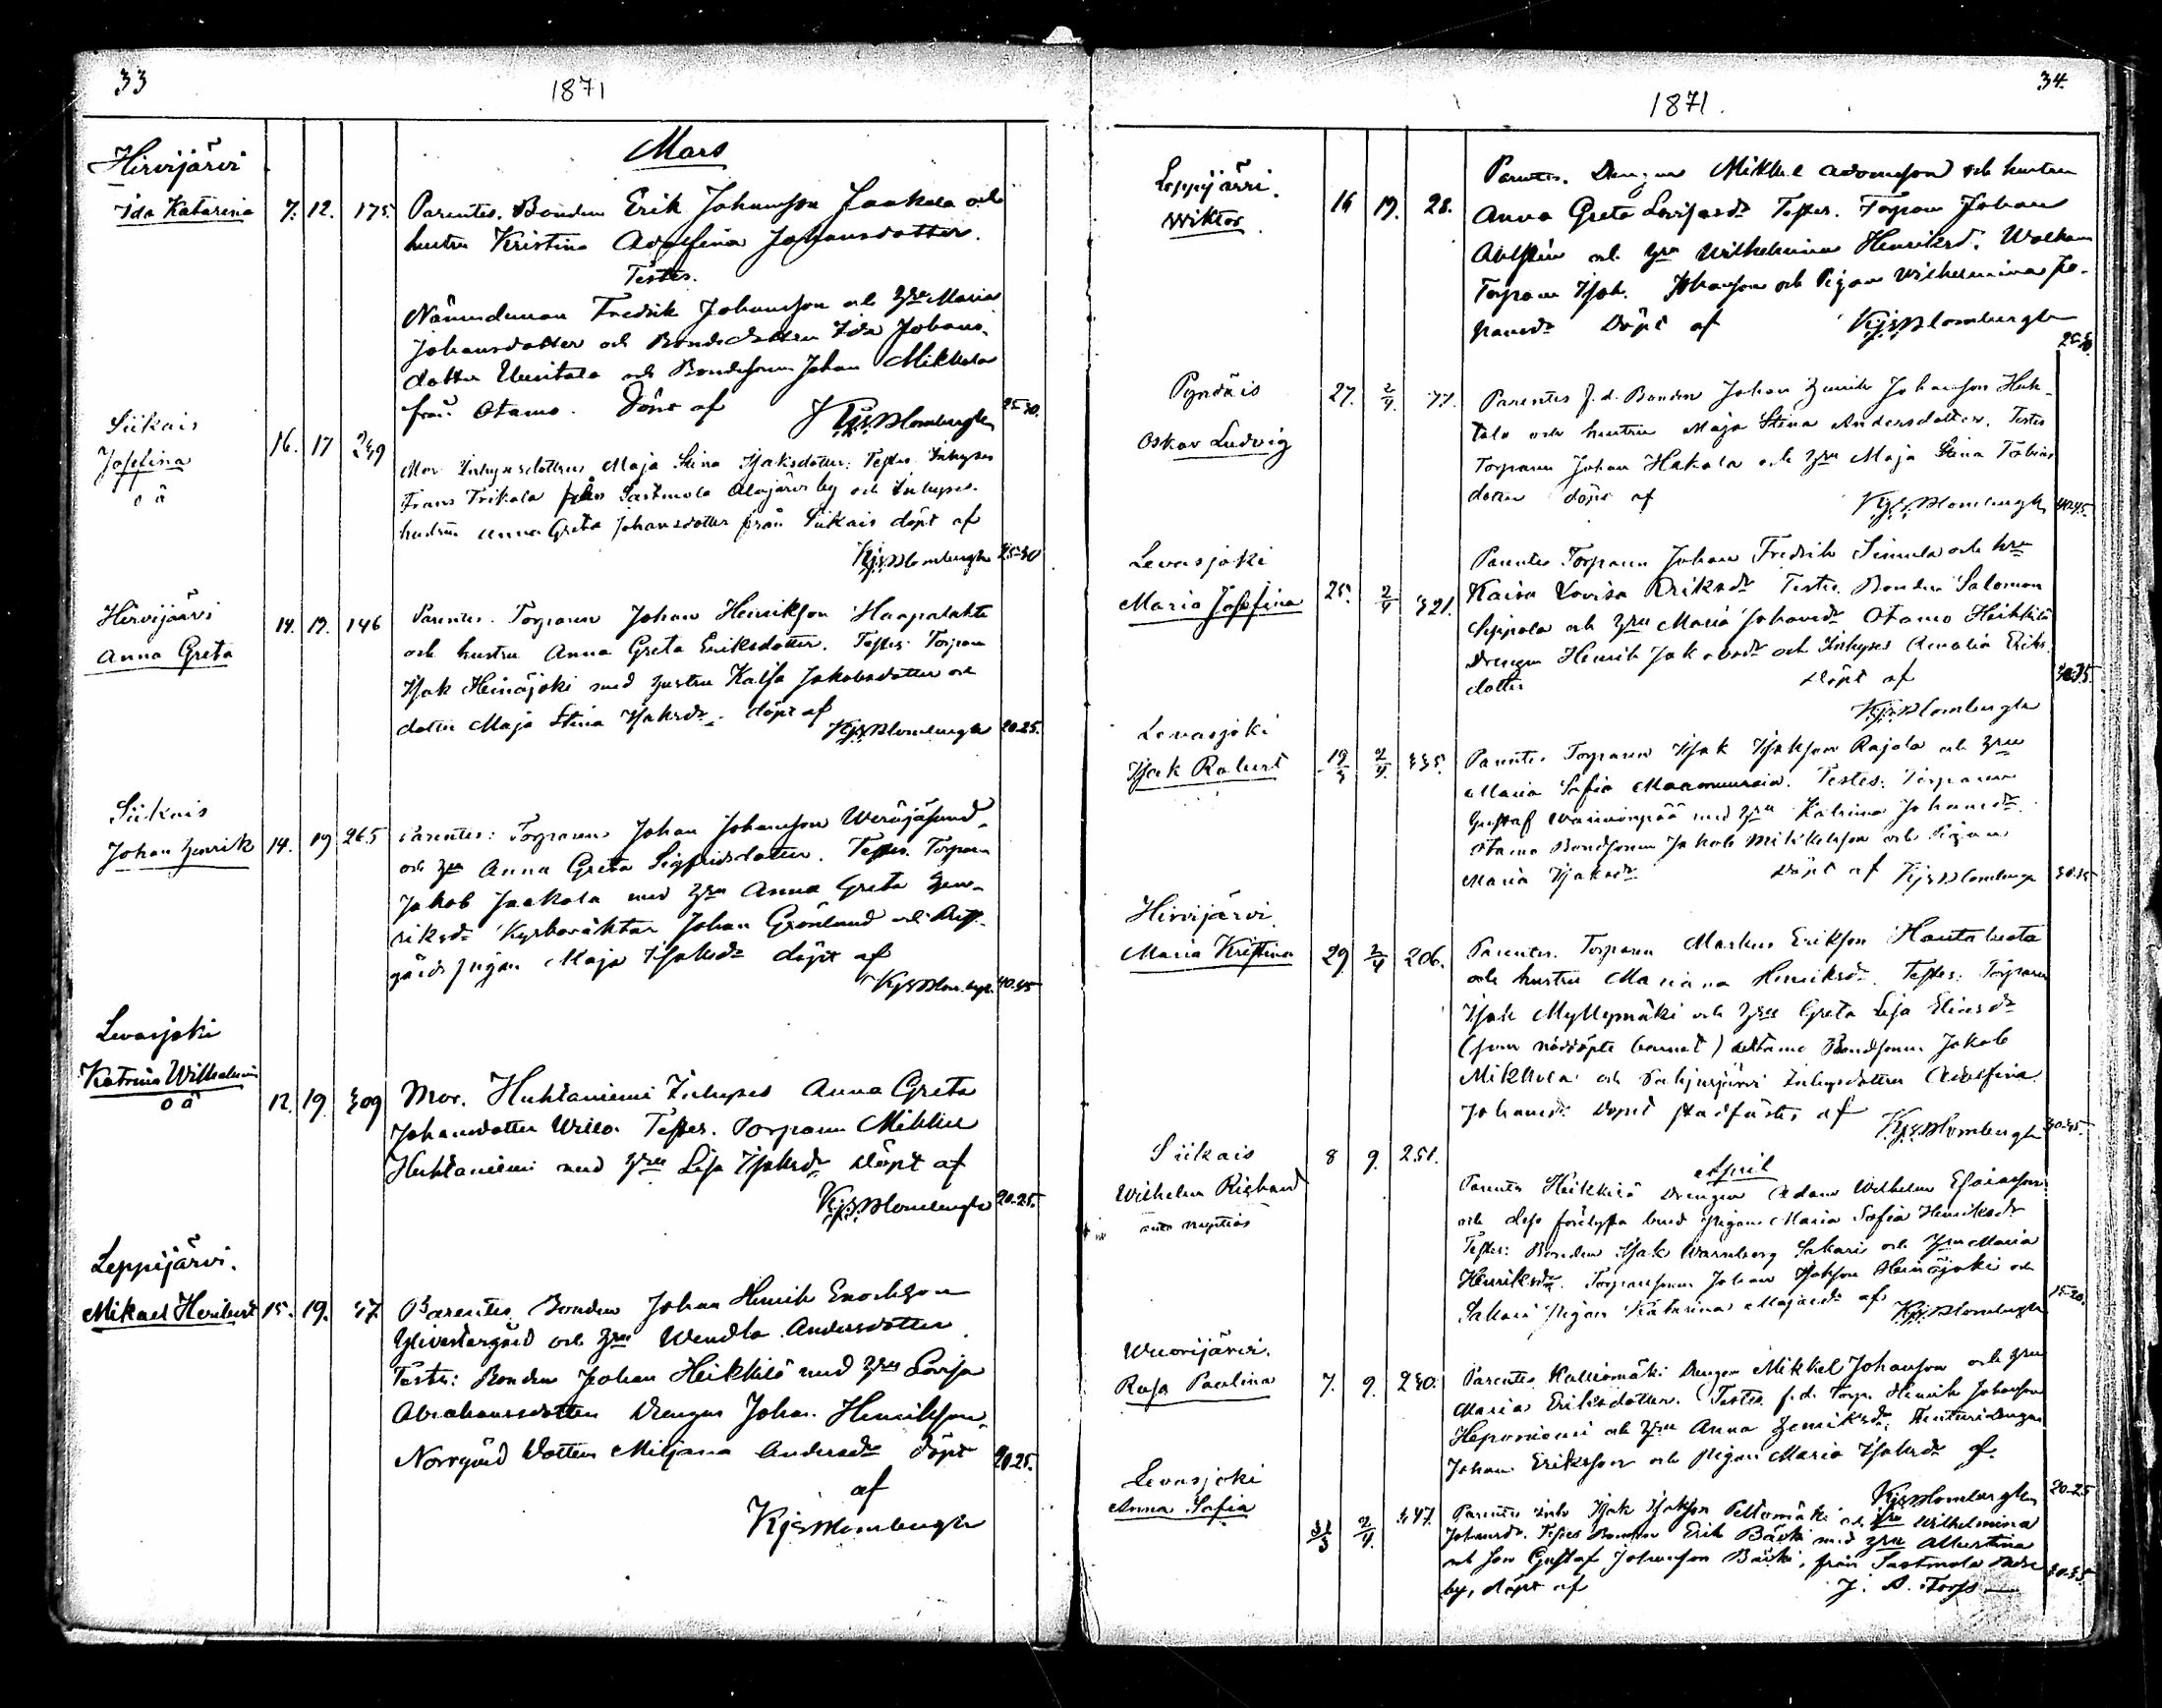 33
1871
Mars
Hirvijärvi
Ida Katarina 7. 12. 175. Parentes. Bonden Erik Johansson Jaakola och
hustru Kristina Adolfina Johansdotter.
Testes.
Nämndeman Fredrik Johansson och Hru Maria
Johansdotter och Bondedottren Ida Johans-
dotter Uusitalo och Bondesonen Johan Mikkola
från Otamo. Döpt af KJSBlombergh 25-30.
Siikais
Josefina 16. 17 249 Mor Inhysesdottren Maja Stina Isaksdotter: Testes Inhyses
o ä
Frans Trikala från Sastmola Alajärvi by och Inhyses-
hustrun Anna Greta Johansdotter från Siikais döpt af
KJSBlombergh 25-30
Hirvijärvi
Anna Greta 14. 19. 146 Parentes. Torparen Johan Henriksson Haapalahti
och hustru Anna Greta Eriksdotter. Testes: Torparen
Isak Heinäjoki med hustru Kaisa Jakobsdotter och
dotter Maja Stina Isaksdr. döpt af
KJSBlombergh 20-25.
Siikais
Johan Henrik 14. 19 265 Parentes: Torparen Johan Johansson
och Hru Anna Greta Sigfridsdotter. Testes. Torparen
Jakob Jaakola med Hru Anna Greta Hen-
riksdr Kyrkovaktar Johan Grönlund och
gårds pigan Maja Isaksdr döpt af
KJSBlombergh 40-45
Levasjoki
Katrina Wilhelmina
o ä 12. 19. 309 Mor. Huhtaniemi Inhyses Anna Greta
Johansdotter Testes. Torparen Mikkel
Huhtaniemi med Hru Lisa Isaksdr döpt af
KJSBlombergh 20-25.
Leppijärvi.
Mikael Heribert 15. 19. 47. Parentes Bonden Johan Henrik Enochsson
Yliwestergård och Hru Wendla Andersdotter
Testes: Bonden Johan Heikkilä med Hru Lovisa
Abrahamsdotter Drengen Johan Henriksson
Norrgård Dottren Miljana Andersdr döpt 20-25.
af
KJSBlombergh
34.
1871.
Leppijärvi.
Wiktor 16 19. 28. Parentes. Drengen Mikkel Adamsson och hustru
Anna Greta Lovisasdr Testes. Torparen Johan
och Hru Wilhelmina Henriksd.
Torparen Isak Johansson och Pigan Wilhelmina Jo-
hansdr Döpt af KJSBlombergh
25-30.
Pyndäis
Oskar Ludvig 27. 2/4. 77. Parentes f.d. Bonden Johan Henrik Johansson Huh-
tala och hustru Maja Stina Andersdotter. Testes
Torparen Johan Hakala och Hru Maja Stina Tobias
dotter döpt af
KJSBlombergh 40-45.
Levasjoki
Maria Josefina 25. 2/4 321. Parentes Torparen Johan Fredrik Simula och Hru
Kaisa Lovisa Eriksdr Testes. Bonden Salomon
Seppälä och Hru Maria Johansdr Otamo Heikkilä
Drengen Henrik Jakobsdr och Inhyses Amalia Eriks
dotter döpt af
KJSBlombergh
Levasjoki
Isak Robert 19/3 2/4. 335. Parentes Torparen Isak Isaksson Rajala och Hru
Maria Sofia Maanmuurain. Testes: Torparen
Gustaf med Hru Katrina Johansdr
Otamo Bondsonen Jakob Mikkelsson och Pigan
Maria Isaksdr Döpt af KJSBlombergh
Hirvijärvi
Maria Kristina 29 2/4 206. Parentes. Torparen Markus Eriksson Hautaluoto
och hustru Mariana Henriksdr. Testes: Torparen
Isak Myllymäki och Hru Greta Lisa Eliasdr
(som nöddöpte barnet) Otamo Bondsonen Jakob
Mikkola och Inhysdottren Adolfina
Johansdr Dopet stadfästes af
KJSBlombergh
April
Siikais
Wilhelm Rickard
ante nuptias 8 9. 251. Parentes Heikkilä Drengen Adam Wilhelm Esaiasson
och dess förelofta brud pigan Maria Sofia Henriksdr
Testes: Bonden Isak Warnberg Sakari och Hru Maria
Henriksdr. Torparesonen Johan Isaksson Heinäjoki och
Sakari Pigan Katarina Majasdr af KJSBlombergh 15-20.
Wuorijärvi.
Rosa Paulina 7. 9. 230. Parentes Kalliomäki Drengen Mikkel Johansson och Hru
Maria Eriksdotter. Testes f.d. Torp. Henrik Johansson
Heponiemi och Hru Anna Henriksdr.
Johan Eriksson och Pigan Maria Isaksdr af
KJSBlombergh 20-25
Levasjoki
Anna Sofia 31/3 2/4. 347. Parentes Inh Isak Isaksson Peltomäki och Hru Wilhelmina
Johansdr. Testes Bonden Erik Bäcki med Hru Albertina
och son Gustaf Johansson Bäcki, från Sastmola
by, döpt af J. A. Forss